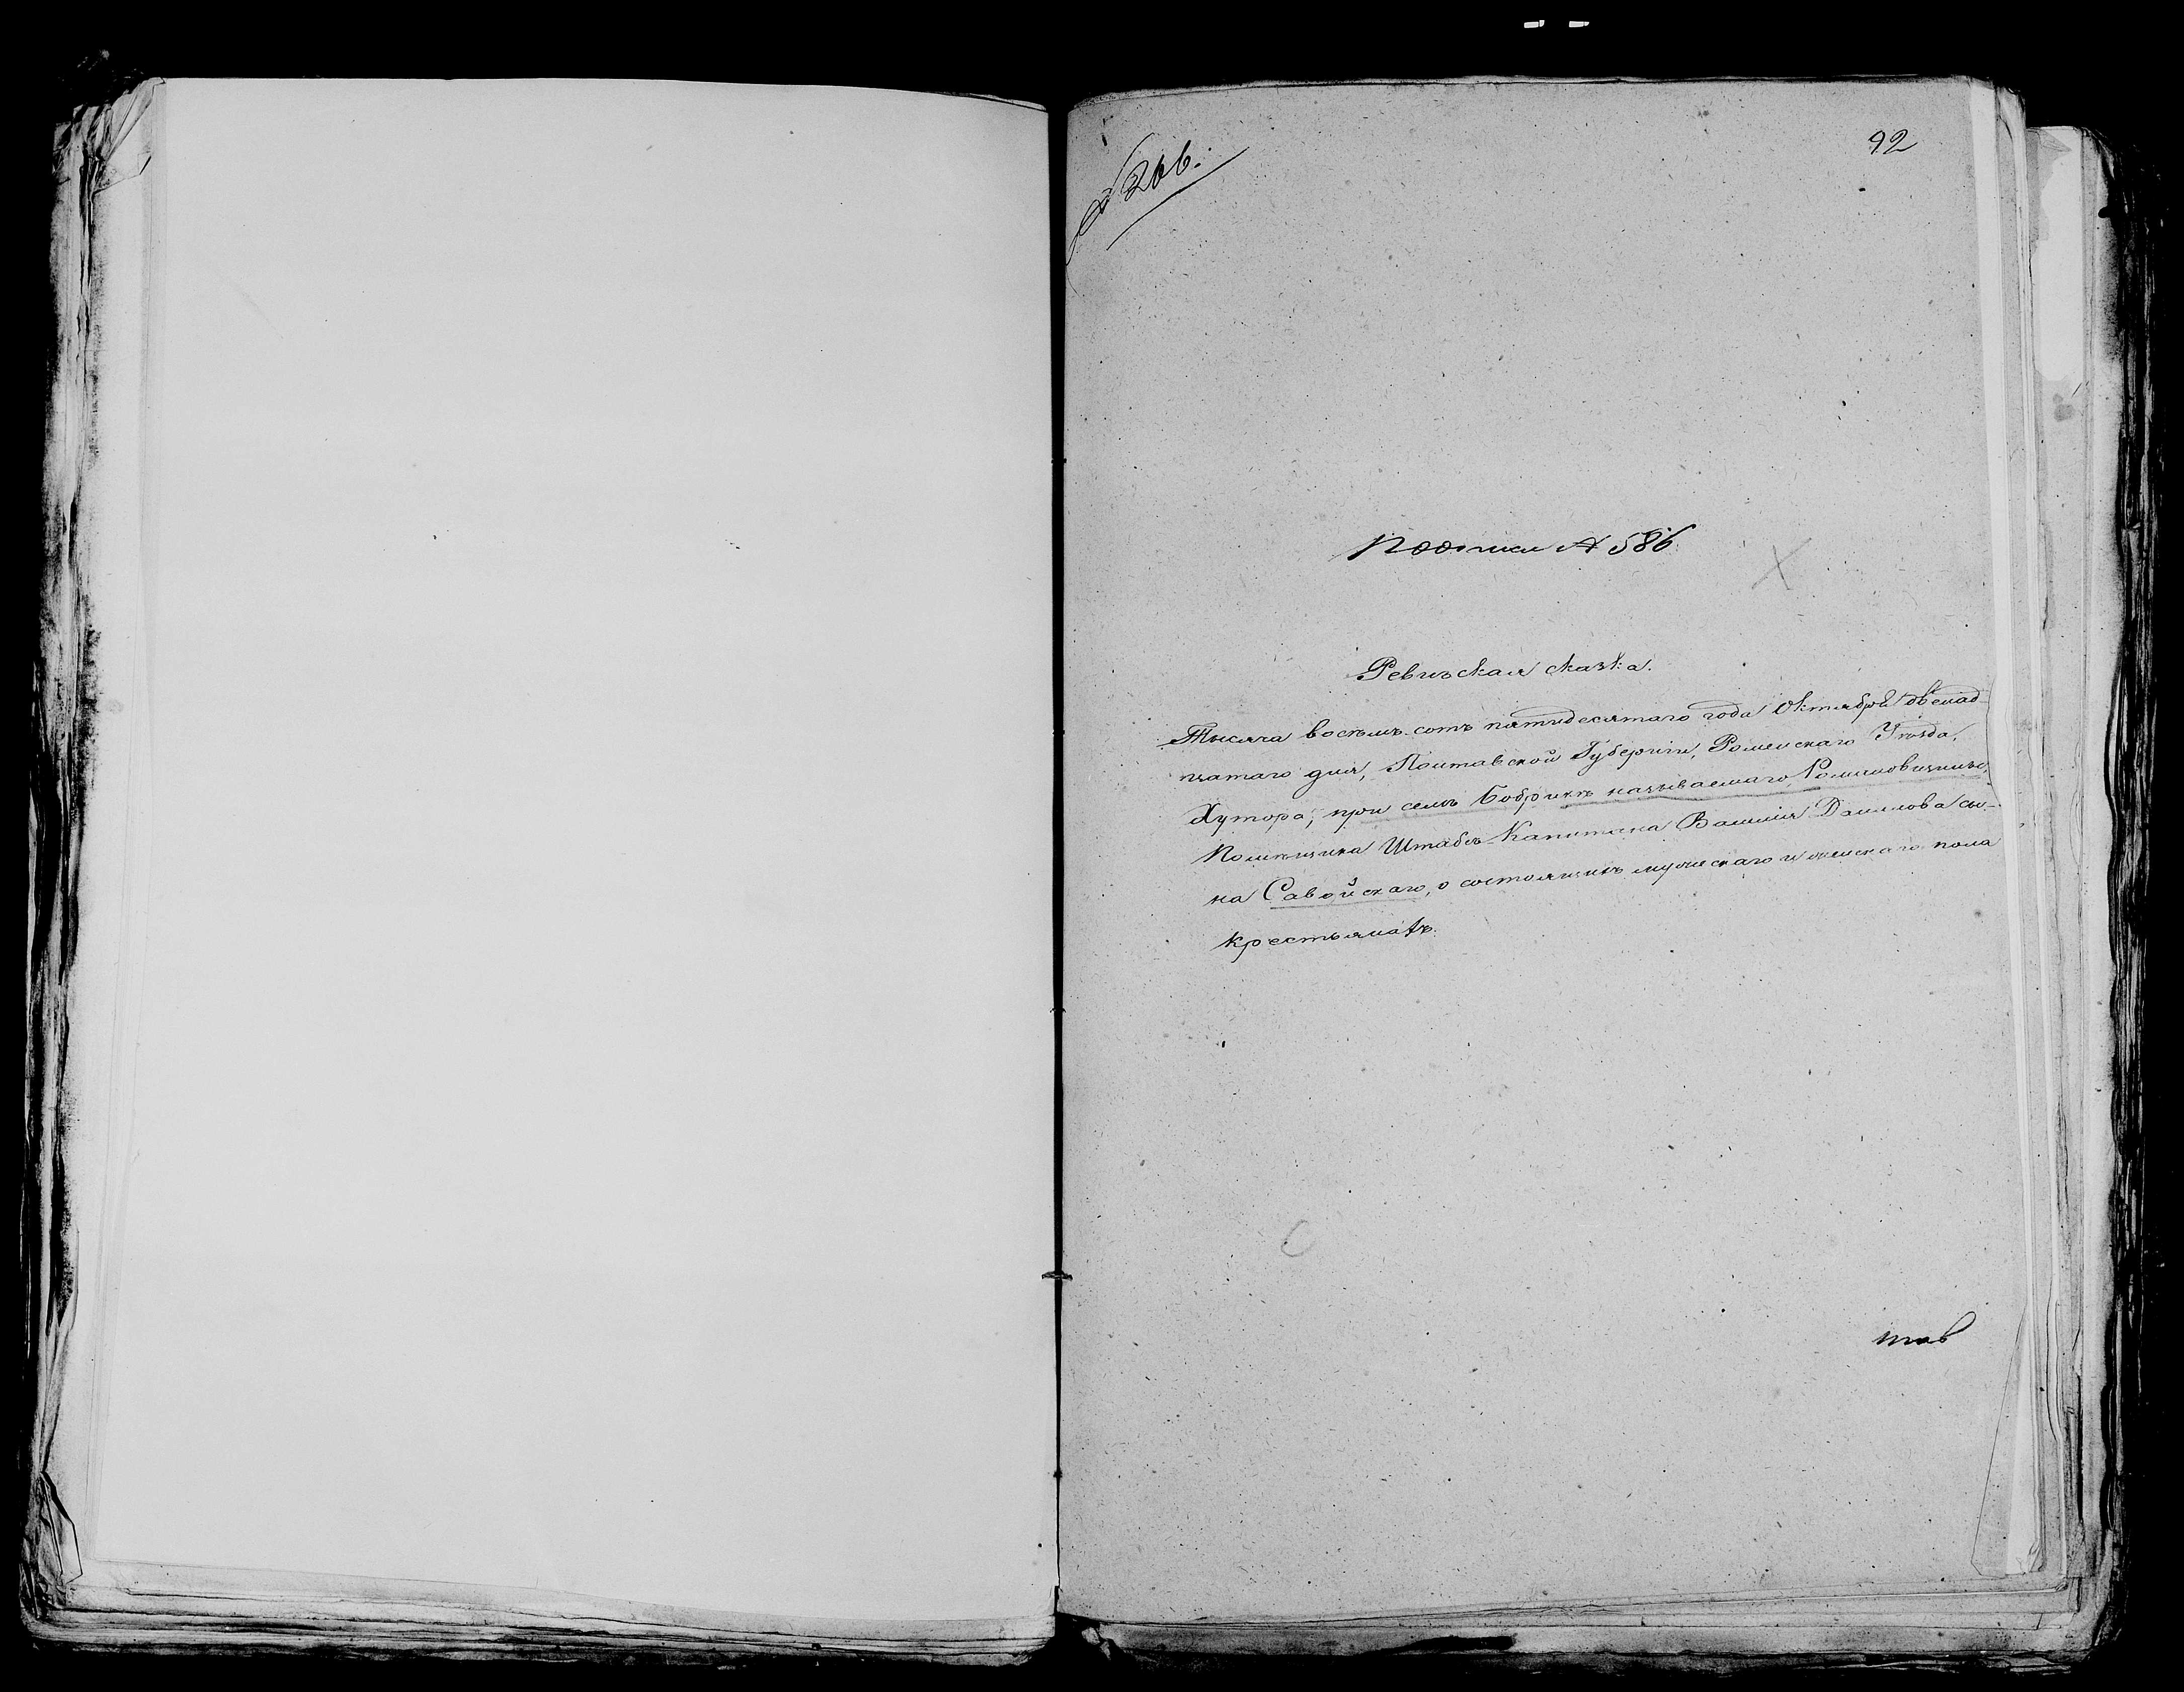 92
№ 266.
По описи № 586
Ревизская сказка.
Тысяча восемь сотъ пятидесятаго года Октября двенад-
цатаго дня, Полтавской Губерніи, Роменскаго Уѣзда,
Хутора, при селѣ Бобрикѣ называемаго,
Помѣщика Штабсъ-Капитана Василия Данилова сы-
на Савойскаго, о состоящихъ мужескаго и женскаго пола
крестьянахъ.